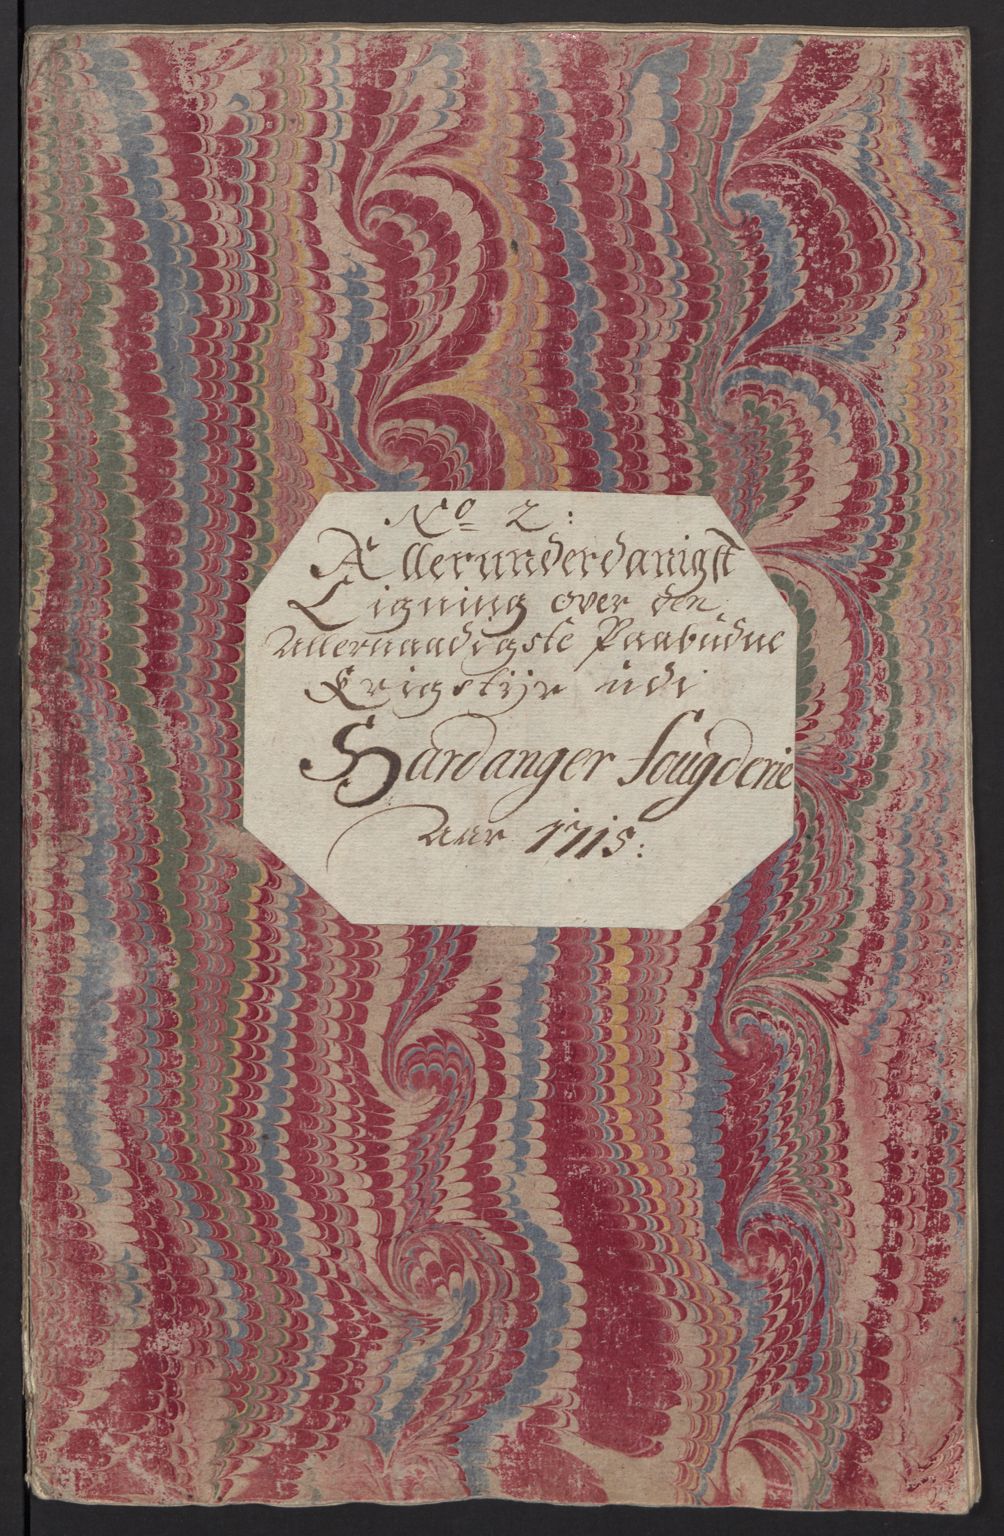 No 2:
Allerunderdanigst
Ligning over den
Allernaadigste Paabudne
Krigstijr udi
Hardanger fougderie
Aar 1715: